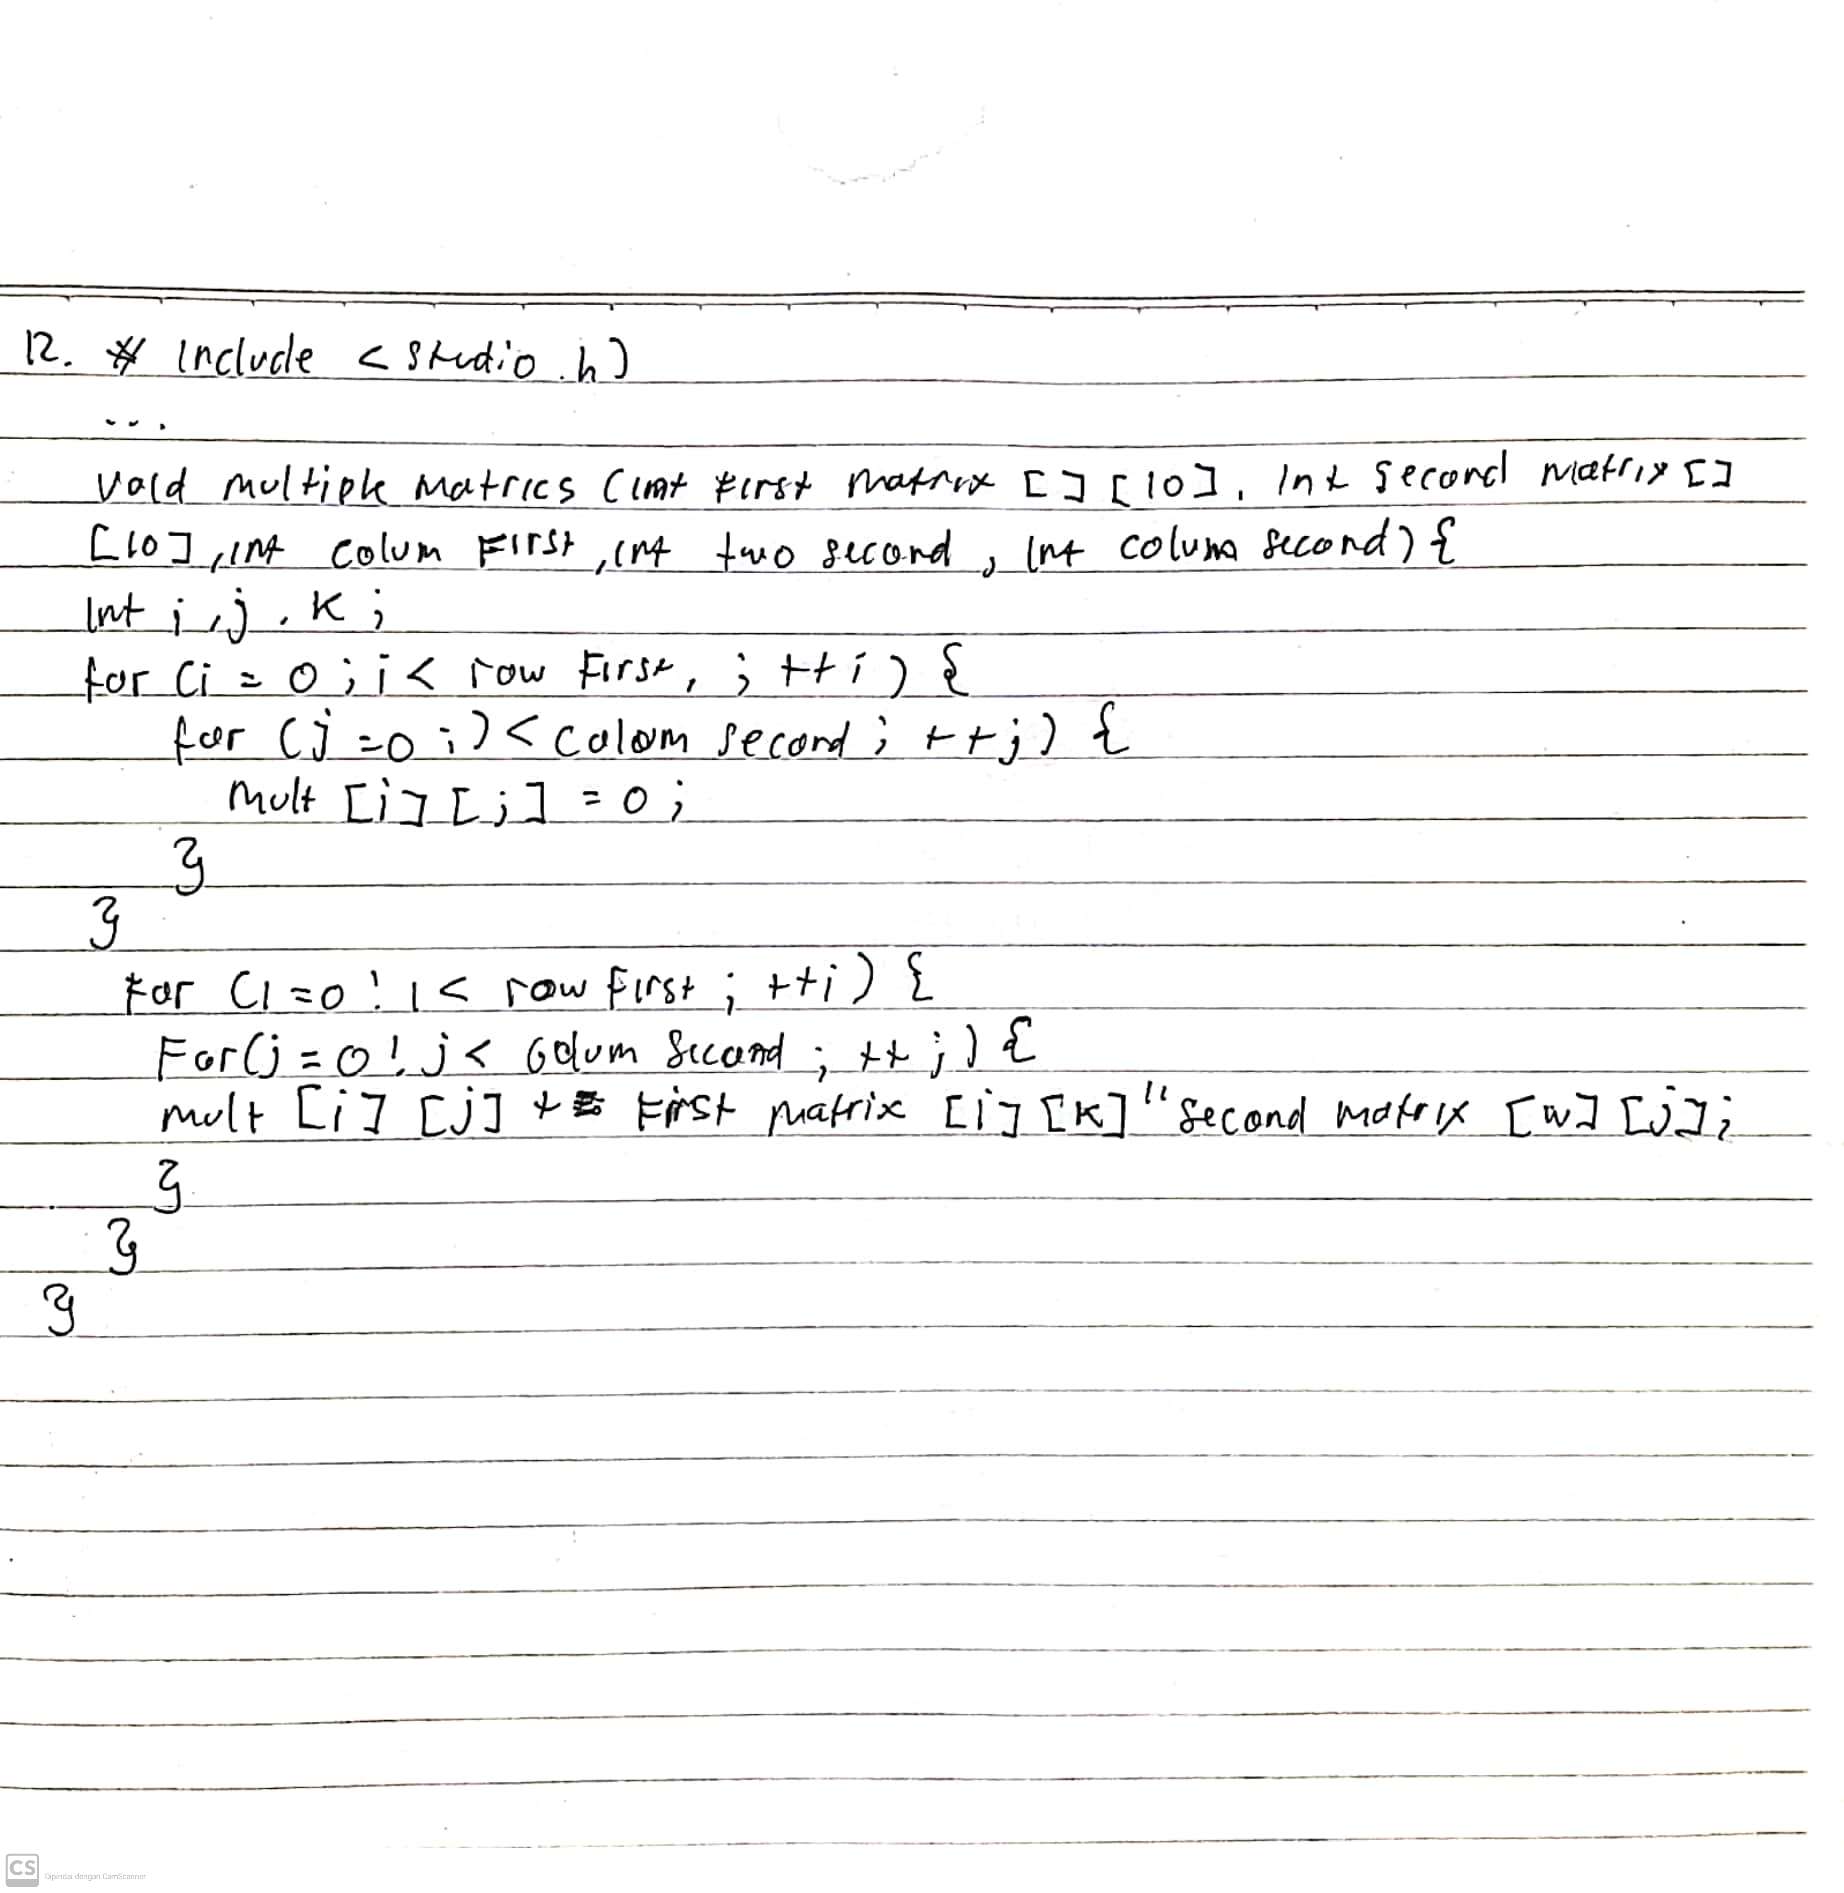 12. # Include < Studio.h)
...
Void multiple Matrics (imt First Matrix [] [10], Int Second Matrix []
[10], int colum First, int two second, int colum second) {
Int i, j, k;
for (i = 0; i < row First, ; ++i) {
for (j =0 ;) < Colom second; ++j) {
Mult [i] [j] = 0;
}
}
For (1=0! 1< row First; ++i) {
For(j=0! j< Colum Second; ++j) {
mult [i] [j] += First Matrix [i] [k] " Second matrix [w] [j];
}
}
}
CS Dipindai dengan CamScanner